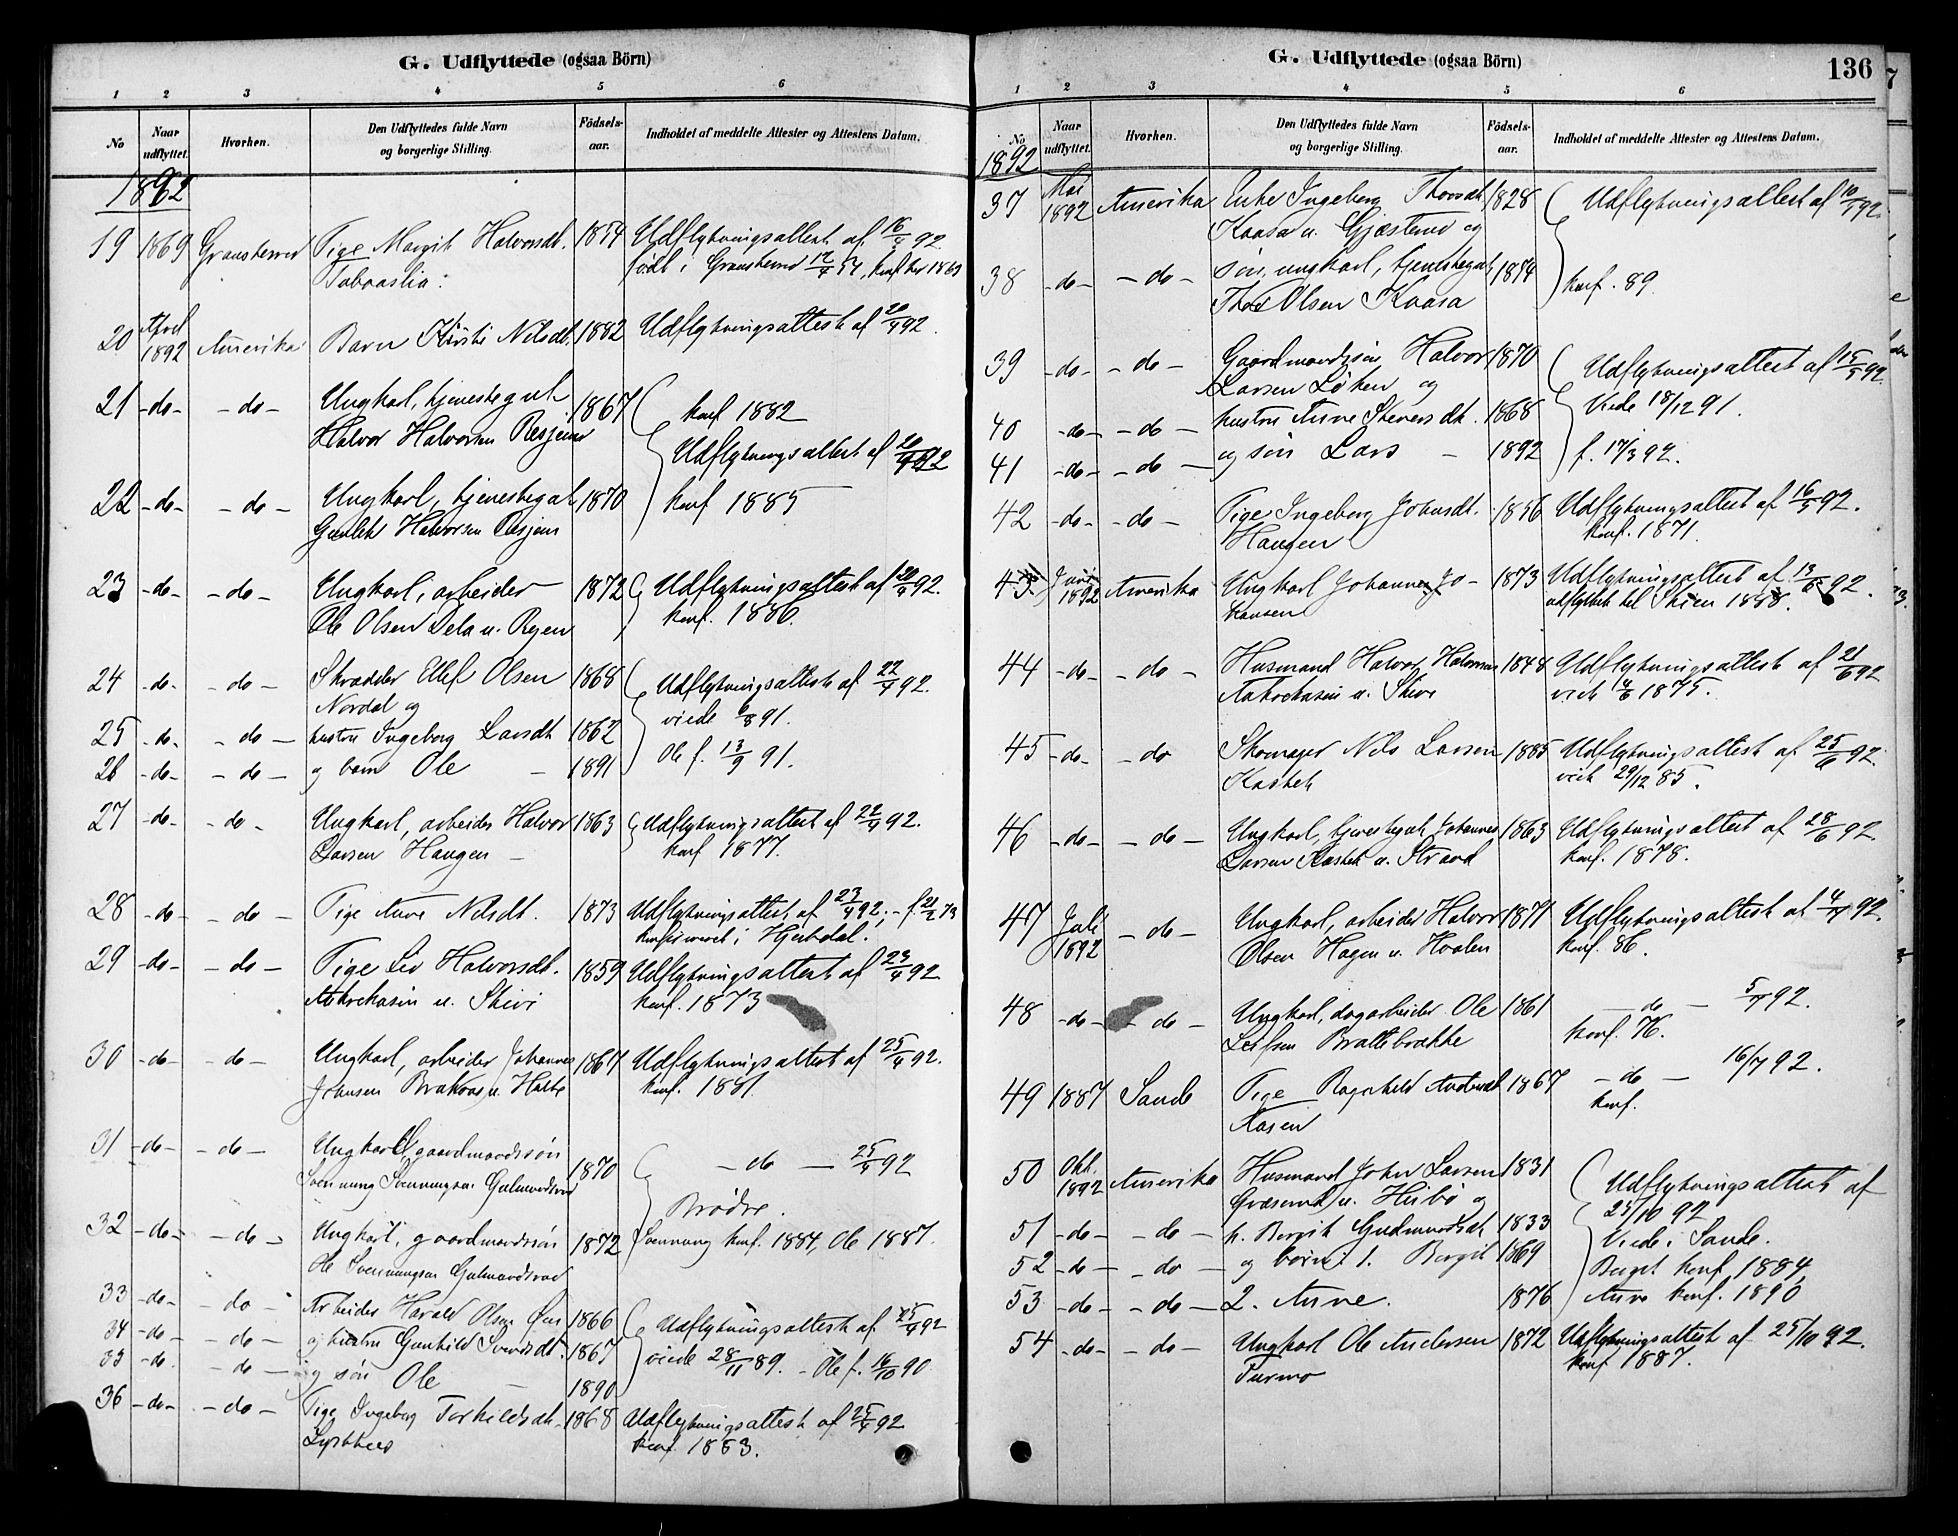 G. Udflyttede (ogsaa Börn)
1 2 3 4 5 6
No Naar udflyttet. Hvorhen. Den Udflyttedes fulde Navn og borgerlige Stilling. Födsels-aar. Indholdet af meddelte Attester og Attestens Datum.
1892
19 1869 Gransherred Pige Margit Halvorsdt. 1854 Udflytningsattest af 16/4 92
født i Gransherred 12/4 54, konf. her 1869
20 April 1892 Amerika Barn Kirsti Nilsdt. 1882 Udflytningsattest af 20/4 92.
21 -do- -do- Ungkarl, tjenestegut 1867 konf 1882
Halvor Halvorsen Udflytningsattest af 20/4 92
22 -do- -do- Ungkarl, tjenestegut 1870 konf 1885
Gunlek Halvorsen
23 -do- -do- Ungkarl, arbeider 1872 Udflytningsattest af 20/4 92.
Ole Olsen Dela u. konf. 1886.
24 -do- -do- Skrædder Ellef Olsen 1868 Udflytningsattest af 22/4 92.
Nordal og viede 91.
25 -do- -do- hustru Ingeborg Larsdt 1862
26 -do- -do- og barn Ole - 1891 Ole f. 13/9 91.
27 -do- -do- Ungkarl, arbeider Halvor 1863 Udflytningsattest af 22/4 92.
Larsen Haugen - konf 1877.
28 -do- -do- Pige Anne Nilsdt. 1873 Udflytningsattest af 23/4 92, - f 21/2 73
konfirmeret i Hjertdal.
29 -do- -do- Pige Liv Halvorsdt. 1859 Udflytningsattest af 23/4 92
u. Skivi konf. 1873
30 -do- -do- Ungkarl, arbeider Johannes 1867 Udflytningsattest af 25/4 92.
Johnsen u. konf. 1881.
31 -do- -do- Ungkarl, gaardmandssøn 1870 -do- 25/4 92
Svennung Svennungsen
Brødre.
32 -do- -do- Ungkarl, gaardmandssøn 1872 Svennung konf. 1884, Ole 1887.
Ole Svennungsen
33 -do- -do- Arbeider Harald Olsen 1866 Udflytningsattest af 25/4 92
34 -do- -do- og hustru Gunhild 1867 viede 28/11 89. - Ole f. 16/10 90
35 -do- -do- og søn Ole - 1890
36 -do- -do- Pige Ingeborg Torkildsdt 1868 Udflytningsattest af 25/4 92
konf. 1883.
G. Udflyttede (ogsaa Börn)
136
1 2 3 4 5 6
No Naar udflyttet. Hvorhen. Den Udflyttedes fulde Navn og borgerlige Stilling. Födsels-aar. Indholdet af meddelte Attester og Attestens Datum.
1892
37 Mai 1892 Amerika Enke Ingeborg Thorsdt 1828 Udflytningsattest af 10/5 92
Kaasa u. Gjæstrud og
38 -do- -do- søn, ungkarl, tjenestegut 1874 konf. 89
Thor Olsen Kaasa
39 -do- -do- Gaardmandssøn Halvor 1870 Udflytningsattest af 15/5 92
Larsen Løken og Viede 18/12 91.
40 -do- -do- hustru Anne 1868
41 -do- -do- og søn Lars - 1892 f. 17/3 92.
42 -do- -do- Pige Ingeborg Johnsdt. 1856 Udflytningsattest af 16/5 92.
Haugen konf. 1871.
43 Juni 1892 Amerika Ungkarl Johannes Jo- 1873 Udflytningsattest af 13/6 92.
hansen udflyttet til Skien 1888.
44 -do- -do- Husmand Halvor Halvorsen 1848 Udflytningsattest af 21/6 92
u. Skivi viet 4/6 1875.
45 -do- -do Skomager Nils Larsen 1885 Udflytningsattest af 25/6 92.
Kastet viet 29/12 85.
46 -do- -do- Ungkarl, tjenestegut Johannes 1863 Udflytningsattest af 28/6 92.
Larsen Kastet u. Strand konf. 1878.
47 Juli 1892 -do- Ungkarl, arbeider Halvor 1871 Udflytningsattest af 4/7 92.
Olsen Hagen u. Hvalen konf. 86.
48 -do- -do- Ungkarl, dagarbeider Ole 1861 -do- 5/7 92.
Leifsen Brattebrække konf. 76.
49 1887 Sande Pige Ragnhild Andersdt 1867 -do- 16/7 92.
Aasen konf.
50 Okt. 1892 Amerika Husmand John Larsen 1831 Udflytningsattest af
u. og 25/10 92
51 -do- -do- h. Bergit Gudmundsdt 1833 Viede i Sande.
52 -do- -do- og børn: 1. Bergit 1869 Bergit konf. 1884,
53 -do- -do- 2. Anne. 1876 Anne konf. 1890
54 -do- -do- Ungkarl Ole Andersen 1872 Udflytningsattest af 25/10 92.
Turmo konf 1887.